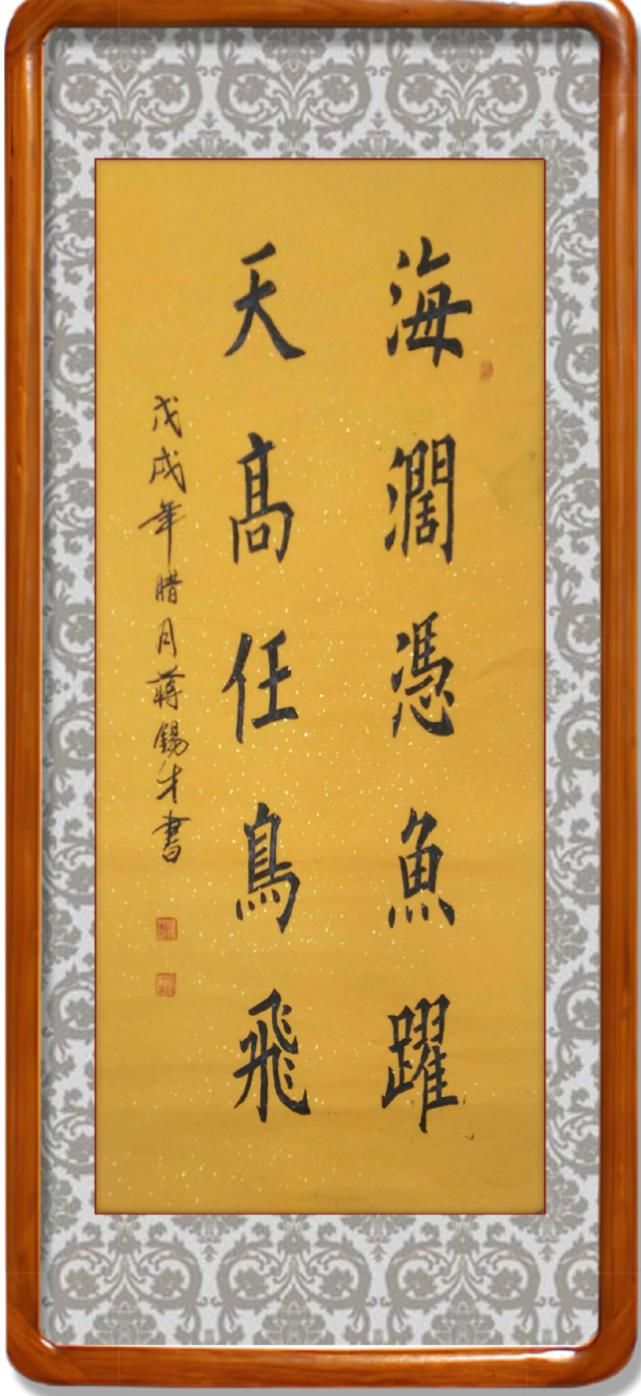 海濶憑魚躍
天高任鳥飛
戊戌年腊月蔣錫才書